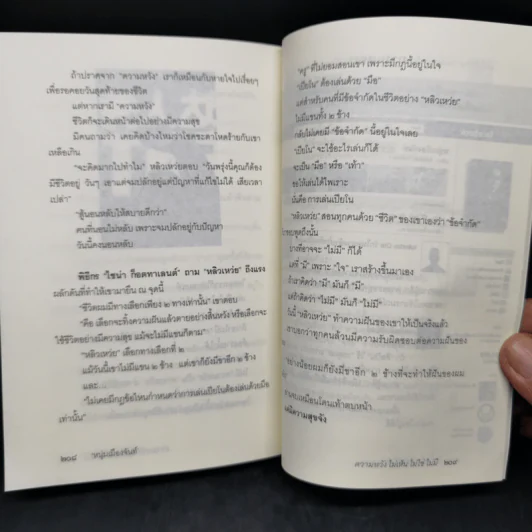 ถ้าปราศจาก "ความหวัง" เราก็เหมือนกับหายใจไปเรื่อยๆ
เพื่อรอคอยวันสุดท้ายของชีวิต
แต่หากเรามี "ความหวัง"
ชีวิตก็จะเดินหน้าต่อไปอย่างมีความสุข
มีคนถามว่า เคยคิดบ้างไหมว่าโชคชะตาโหดร้ายกับเขา
เหลือเกิน
"จะคิดมากไปทำไม" หลิวเหว่ยตอบ "วันพรุ่งนี้คุณก็ต้อง
มีชีวิตอยู่ วันๆ เอาแต่จมปลักอยู่แต่ปัญหาที่แก้ไขไม่ได้ เสียเวลา
เปล่า"
"สู้นอนหลับให้สบายดีกว่า"
คนที่นอนไม่หลับ เพราะจมปลักอยู่กับปัญหา
วันนี้คงนอนหลับ
พิธีกร "ไชน่า ก็อตทาเลนต์" ถาม "หลิวเหว่ย" ถึงแรง
ผลักดันที่ทำให้เขามายืน ณ จุดนี้
"ชีวิตผมมีทางเลือกเพียง ๒ ทางเท่านั้น" เขาตอบ
"คือ เลือกจะทิ้งความฝันแล้วตายอย่างสิ้นหวัง หรือเลือกจะ
ใช้ชีวิตอย่างมีความสุข แม้จะไม่มีแขนก็ตาม"
"หลิวเหว่ย" เลือกทางเลือกที่ ๒
แม้วันนี้เขาไม่มีแขน ๒ ข้าง แต่เขาก็ยังมีขาอีก ๒ ข้าง
และ...
"ไม่เคยมีกฎข้อไหนกำหนดว่าการเล่นเปียโนต้องเล่นด้วยมือ
เท่านั้น"
๒๐๘ หนุ่มเมืองจันท์
"ครู" ที่ไม่ยอมสอนเขา เพราะมีกฎนี้อยู่ในใจ
"เปียโน" ต้องเล่นด้วย "มือ"
แต่สำหรับคนที่มีข้อจำกัดในชีวิตอย่าง "หลิวเหว่ย"
ไม่มีแขนทั้ง ๒ ข้าง
กลับไม่เคยมี "ข้อจำกัด" นี้อยู่ในใจเลย
"เปียโน" จะใช้อะไรเล่นก็ได้
จะเป็น "มือ" หรือ "เท้า"
ขอให้เล่นได้ไพเราะ
นั่นคือ การเล่นเปียโน
"หลิวเหว่ย" สอนทุกคนด้วย "ชีวิต" ของเขาเองว่า "ข้อจำกัด"
บางทีอาจจะ "ไม่มี" ก็ได้
แต่ที่ "มี" เพราะ "ใจ" เราสร้างขึ้นมาเอง
ถ้าเราคิดว่า "มี" มันก็ "มี"
แต่ถ้าคิดว่า "ไม่มี" มันก็ "ไม่มี"
วันนี้ "หลิวเหว่ย" ทำความฝันของเขาให้เป็นจริงแล้ว
เขาบอกว่าทุกคนล้วนมีความรับผิดชอบต่อความฝันของ
"อย่างน้อยผมก็ยังมีขาอีก ๒ ข้างที่จะทำให้ฝันของผม
จบเหมือนโดนเท้าตบหน้า
แต่มีความสุขจัง
ความหวัง ไม่เห็น ไม่ใช่ ไม่มี ๒๐๙